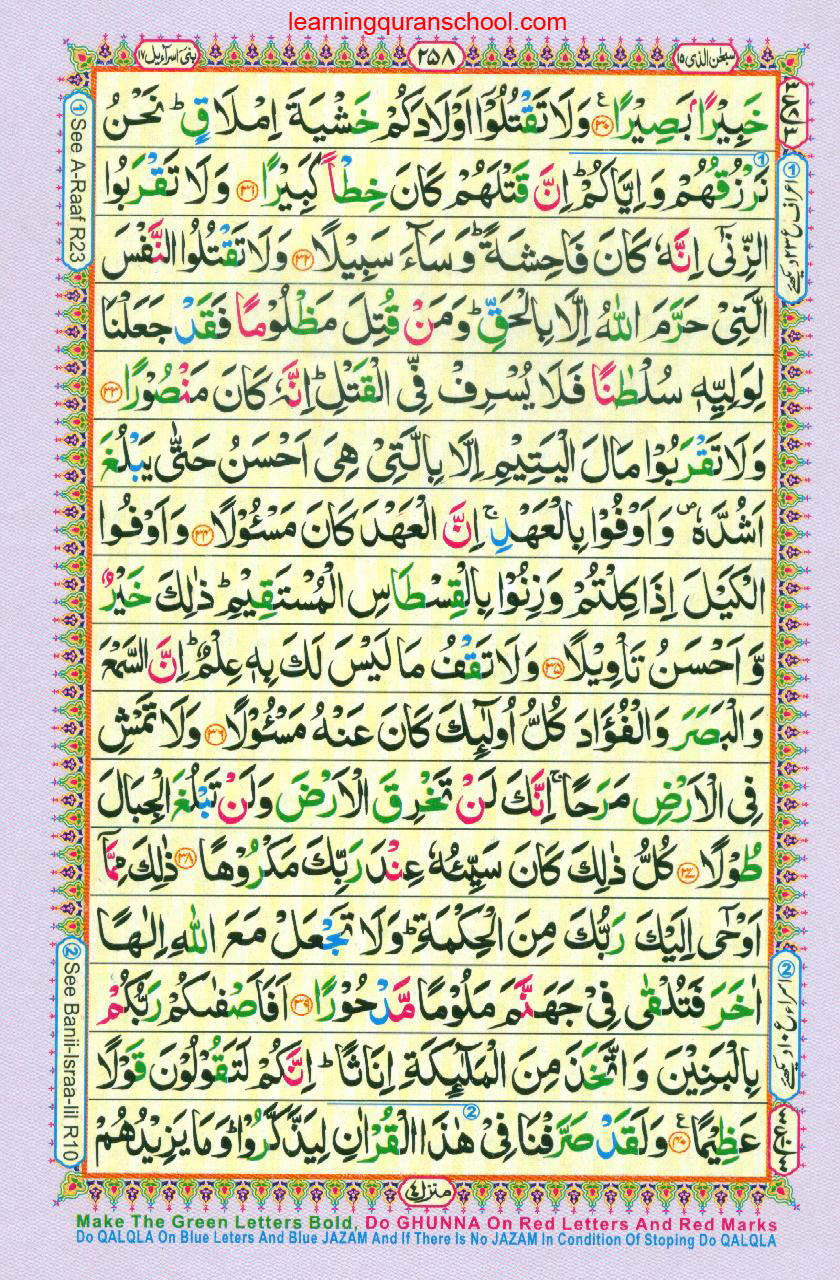 learningquranschool.com
سبحٰن الذی ۱۵
۲۵۸
بنی اسرآءیل ۱۷
خَبِیْرًۢا بَصِیْرًا ۝۳۰ وَلَا تَقْتُلُوْۤا اَوْلَادَكُمْ خَشْیَةَ اِمْلَاقٍ ؕ نَحْنُ
نَرْزُقُهُمْ وَاِیَّاكُمْ ؕ اِنَّ قَتْلَهُمْ كَانَ خِطْاً كَبِیْرًا ۝۳۱ وَلَا تَقْرَبُوا
الزِّنٰۤی اِنَّهٗ كَانَ فَاحِشَةً ؕ وَسَآءَ سَبِیْلًا ۝۳۲ وَلَا تَقْتُلُوا النَّفْسَ
الَّتِیْ حَرَّمَ اللّٰهُ اِلَّا بِالْحَقِّ ؕ وَمَنْ قُتِلَ مَظْلُوْمًا فَقَدْ جَعَلْنَا
لِوَلِیِّهٖ سُلْطٰنًا فَلَا یُسْرِفْ فِّی الْقَتْلِ ؕ اِنَّهٗ كَانَ مَنْصُوْرًا ۝۳۳
وَلَا تَقْرَبُوْا مَالَ الْیَتِیْمِ اِلَّا بِالَّتِیْ هِیَ اَحْسَنُ حَتّٰی یَبْلُغَ
اَشُدَّهٗ ۪ وَاَوْفُوْا بِالْعَهْدِ ۚ اِنَّ الْعَهْدَ كَانَ مَسْـُٔوْلًا ۝۳۴ وَاَوْفُوا
الْكَیْلَ اِذَا كِلْتُمْ وَزِنُوْا بِالْقِسْطَاسِ الْمُسْتَقِیْمِ ؕ ذٰلِكَ خَیْرٌ
وَّاَحْسَنُ تَاْوِیْلًا ۝۳۵ وَلَا تَقْفُ مَا لَیْسَ لَكَ بِهٖ عِلْمٌ ؕ اِنَّ السَّمْعَ
وَالْبَصَرَ وَالْفُؤَادَ كُلُّ اُولٰٓئِكَ كَانَ عَنْهُ مَسْـُٔوْلًا ۝۳۶ وَلَا تَمْشِ
فِی الْاَرْضِ مَرَحًا ۚ اِنَّكَ لَنْ تَخْرِقَ الْاَرْضَ وَلَنْ تَبْلُغَ الْجِبَالَ
طُوْلًا ۝۳۷ كُلُّ ذٰلِكَ كَانَ سَیِّئُهٗ عِنْدَ رَبِّكَ مَكْرُوْهًا ۝۳۸ ذٰلِكَ مِمَّاۤ
اَوْحٰۤی اِلَیْكَ رَبُّكَ مِنَ الْحِكْمَةِ ؕ وَلَا تَجْعَلْ مَعَ اللّٰهِ اِلٰهًا
اٰخَرَ فَتُلْقٰی فِیْ جَهَنَّمَ مَلُوْمًا مَّدْحُوْرًا ۝۳۹ اَفَاَصْفٰىكُمْ رَبُّكُمْ
بِالْبَنِیْنَ وَاتَّخَذَ مِنَ الْمَلٰٓئِكَةِ اِنَاثًا ؕ اِنَّكُمْ لَتَقُوْلُوْنَ قَوْلًا
عَظِیْمًا ۝۴۰ وَلَقَدْ صَرَّفْنَا فِیْ هٰذَا الْقُرْاٰنِ لِیَذَّكَّرُوْا ؕ وَمَا یَزِیْدُهُمْ
① See A-Raaf R23
② See Banii-Israa-Iil R10
منزل ٤
Make The Green Letters Bold, Do GHUNNA On Red Letters And Red Marks
Do QALQLA On Blue Leters And Blue JAZAM And If There Is No JAZAM In Condition Of Stoping Do QALQLA